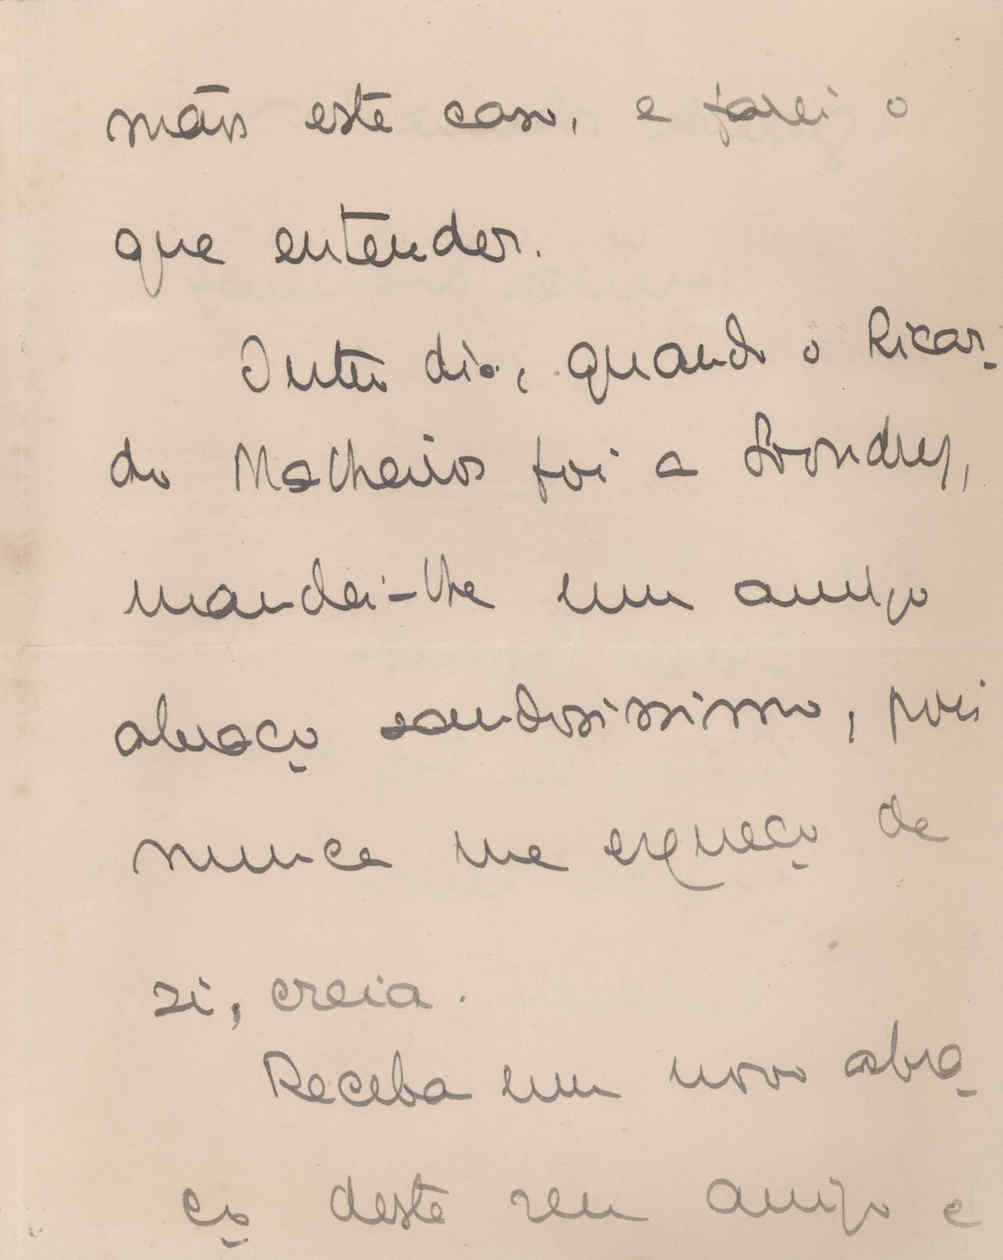 mãos este caso, e farei o
que entender.
Outro dia, quando o Ricar-
do Malheiros foi a Londres,
mandei-lhe um amigo
abraço saudosissimo, pois
nunca me esqueço de
si, creia.
Receba um novo abra-
ço deste seu amigo e